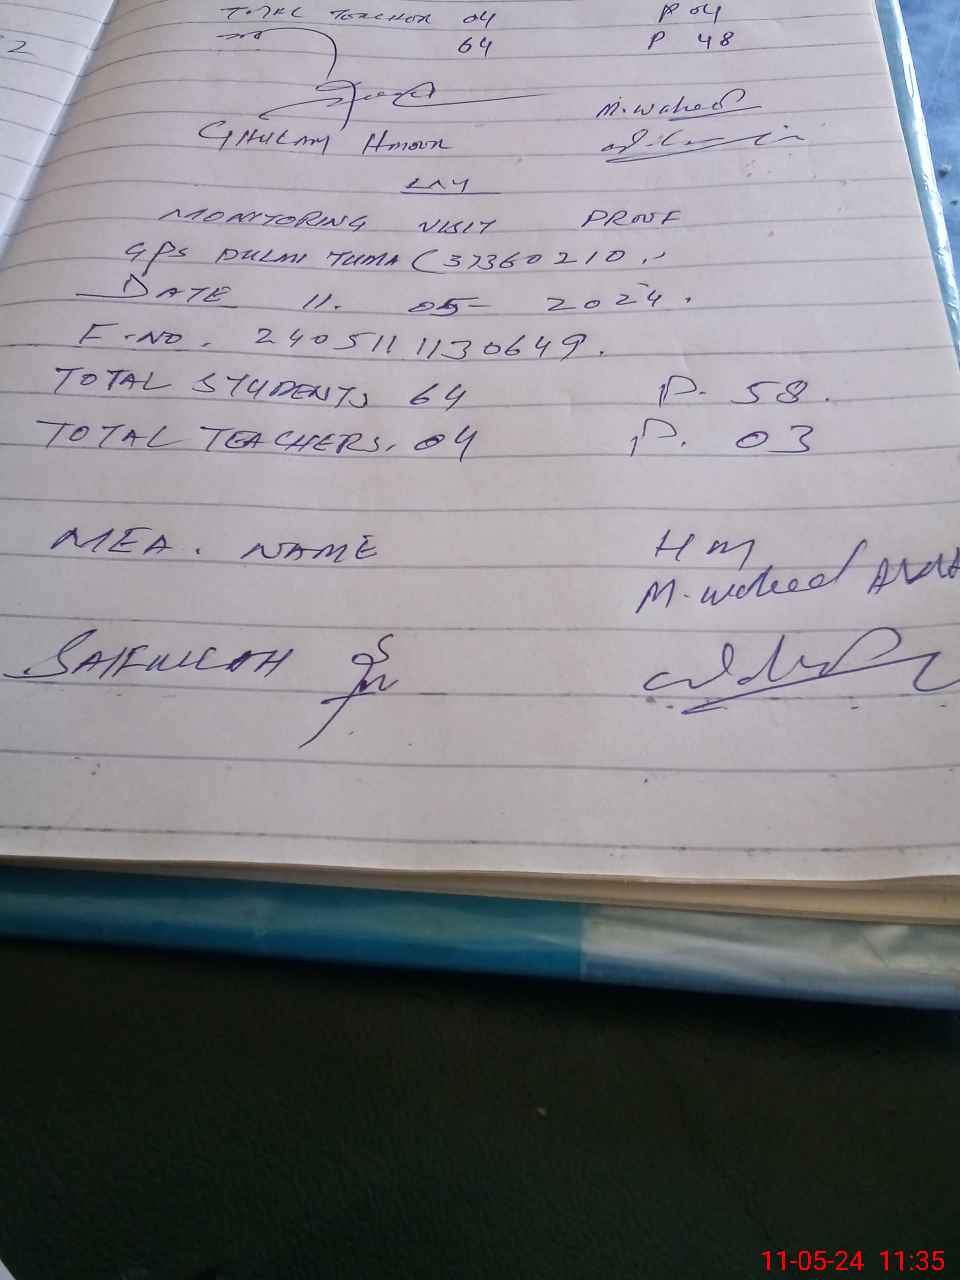 TOTAL TEACHER 04 P 04
64 P 48
M. Waheed
GHULAM
MONITORING VISIT PROUF
GPS DULMI TUMA (37360210.
DATE 11. 05- 2024.
F-NO. 2405111130649.
TOTAL STUDENTS 64 P. 58.
TOTAL TEACHERS. 04 P. 03
MEA. NAME HM
M. Waheed
SAIFULLAH
11-05-24 11:35